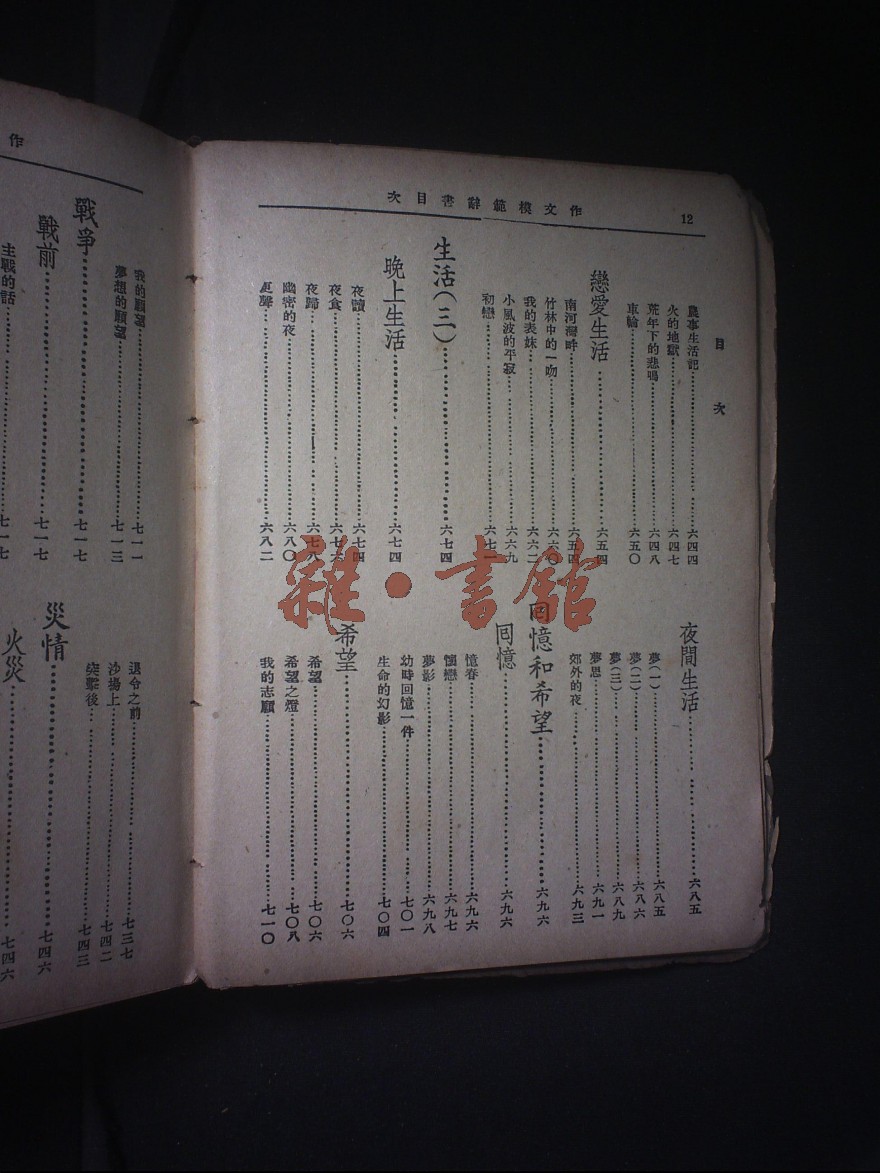 12
作文模範辭書目次
目次
農事生活記……六四四
火的地獄……六四七
荒年下的悲鳴……六四八
車輪……六五〇
戀愛生活……六五四
南河灣畔……六五四
竹林中的一吻……六六〇
我的表妹……六六二
小風波的平寂……六六九
初戀……六七一
生活(三)……六七四
晚上生活……六七四
夜讀……六七四
夜食……六七六
夜歸……六七八
幽密的夜……六八〇
更聲……六八二
夜間生活……六八五
夢(一)……六八五
夢(二)……六八六
夢(三)……六八九
夢思……六九一
郊外的夜……六九三
囘憶和希望……六九六
囘憶……六九六
憶春……六九六
懷戀……六九七
夢影……六九八
幼時回憶一件……七〇一
生命的幻影……七〇四
希望……七〇六
希望……七〇六
希望之燈……七〇八
我的志願……七一〇
雜·書館
作
我的願望……七一一
夢想的願望……七一三
戰爭……七一七
戰前……七一七
主戰的話……七一七
退令之前……七三七
沙場上……七四二
突擊後……七四三
災情……七四六
火災……七四六